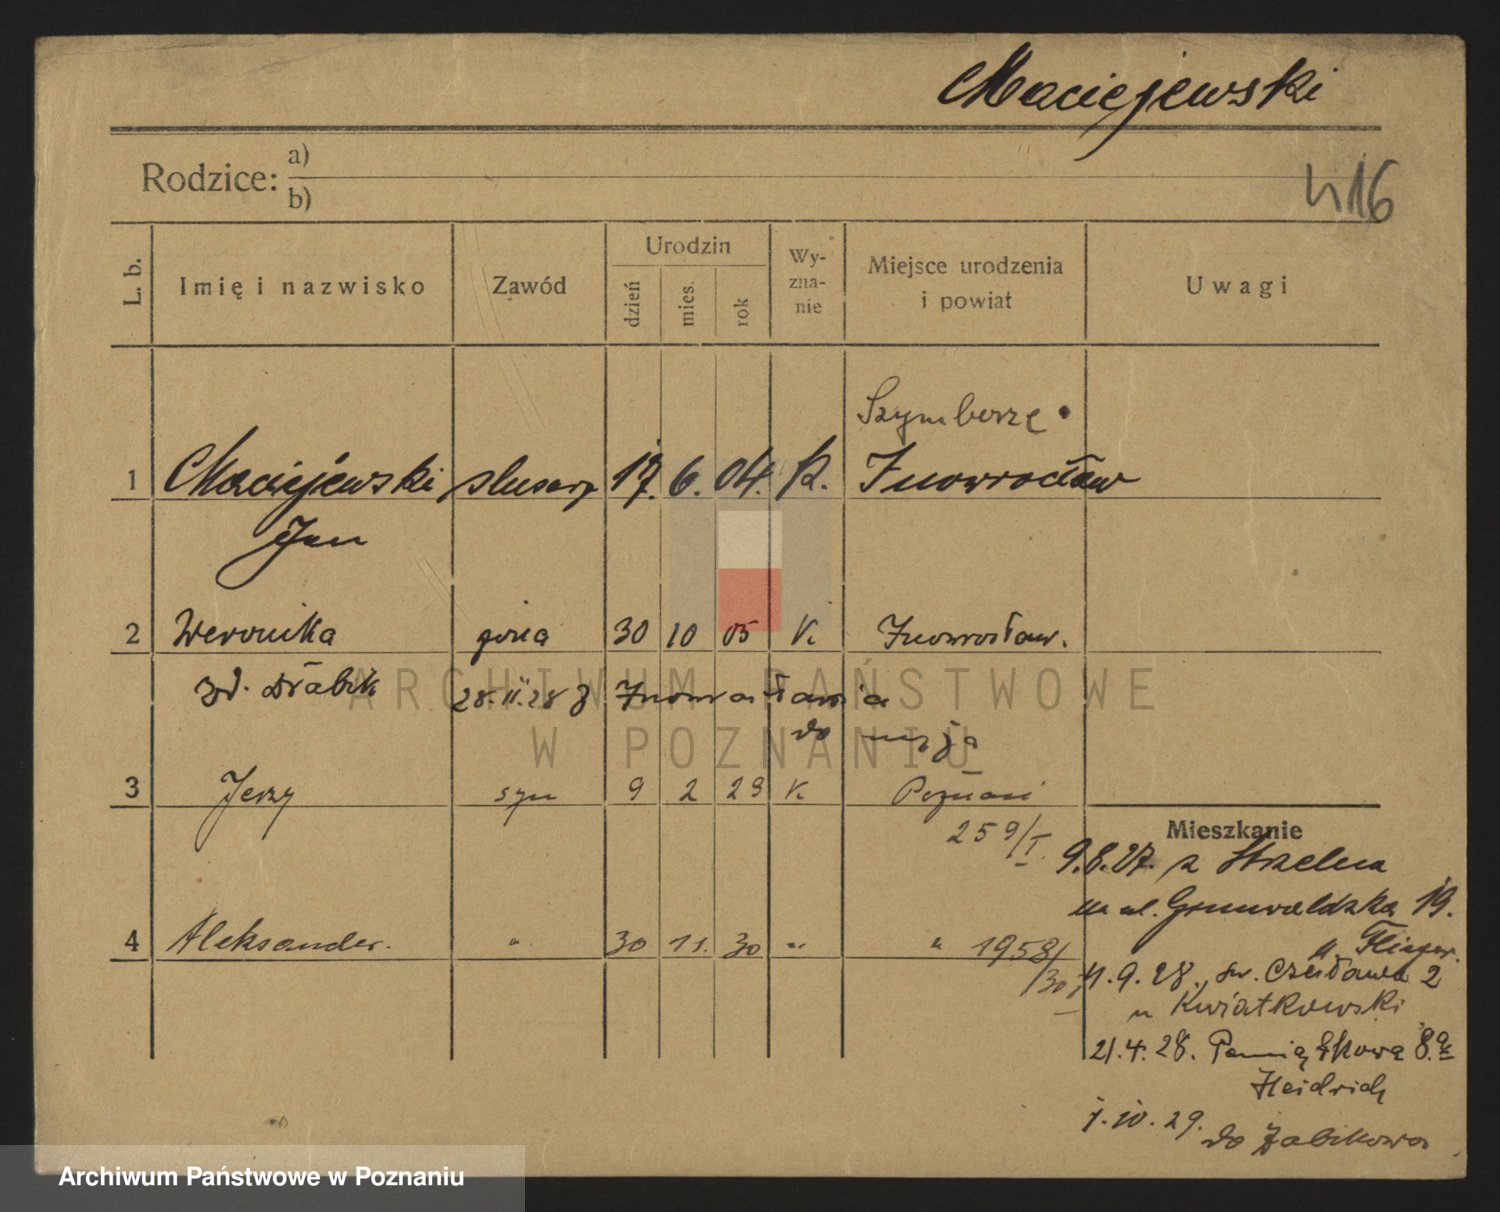 Maciejewski
Rodzice: a)
b)
416
L. b.
Imię i nazwisko
Zawód
Urodzin
dzień
mies.
rok
Wy-
zna-
nie
Miejsce urodzenia
i powiat
Uwagi
Szymborze
1 Maciejewski ślusarz 17. 6. 04. k. Inowrocław
Jan
2 Weronika żona 30 10 05 k. Inowrocław.
zd. Drabik 28. II. 28 z Inowrocławia
do męża
3 Jerzy syn 9 2 29 k. Poznań
259/I
4 Aleksander. " 30 11. 30 " " 1958/30
Mieszkanie
9.8.27. z Strzelna
na ul. Grunwaldzka 19.
u.
11.9.28. św. Czesława 2
u Kwiatkowski
21.4.28. Pamiątkowa 8.a
Heidrich
1.10.29.
do Żabikowa
ARCHIWUM PAŃSTWOWE
W POZNANIU
Archiwum Państwowe w Poznaniu